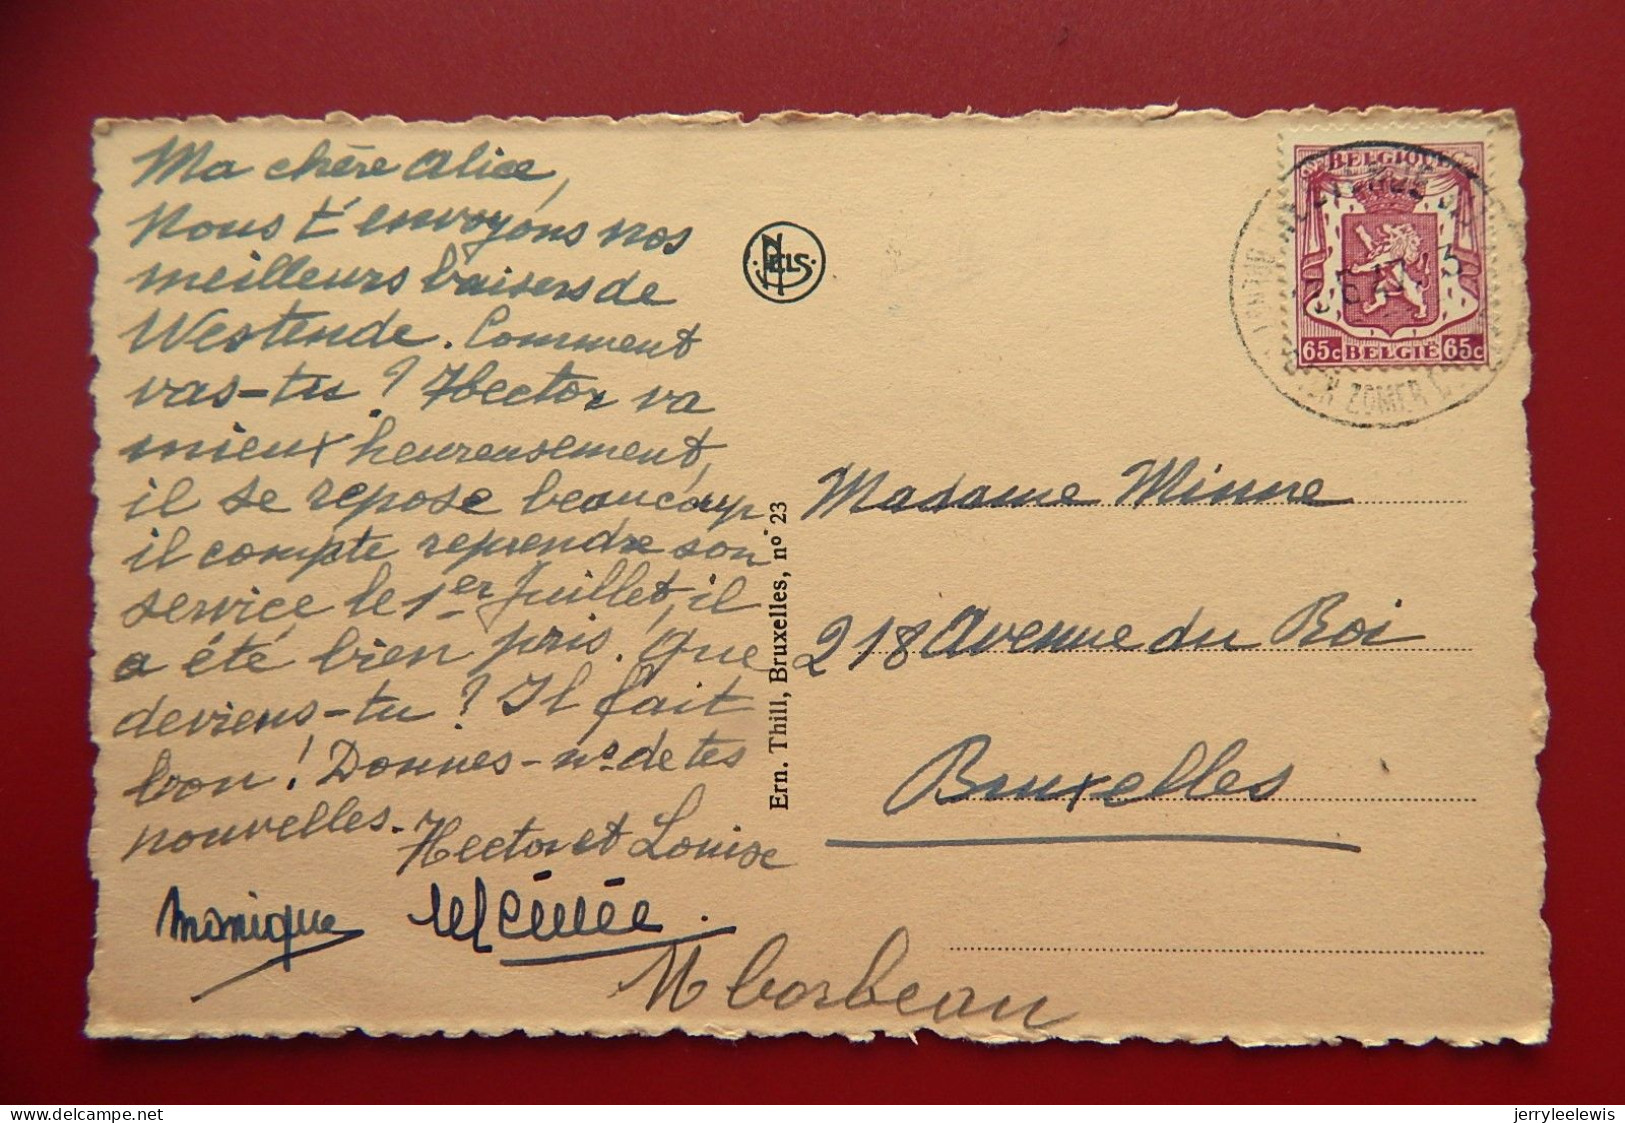 Ma chère Alice,
Nous t'envoyons nos
meilleurs baisers de
Westende. Comment
vas-tu? Hector va
mieux heureusement,
il se repose beaucoup
il compte reprendre son
service le 1er Juillet, il
a été bien pris. Que
deviens-tu? Il fait
bon! Donnes-ns de tes
nouvelles.
Hector et Louise
Monique
M Corbeau
NELS
Ern. Thill, Bruxelles, n° 23
BELGIQUE
65c BELGIË 65c
ZOMER
Madame Minne
218 Avenue du Roi
Bruxelles
delcampe.net
jerryleelewis